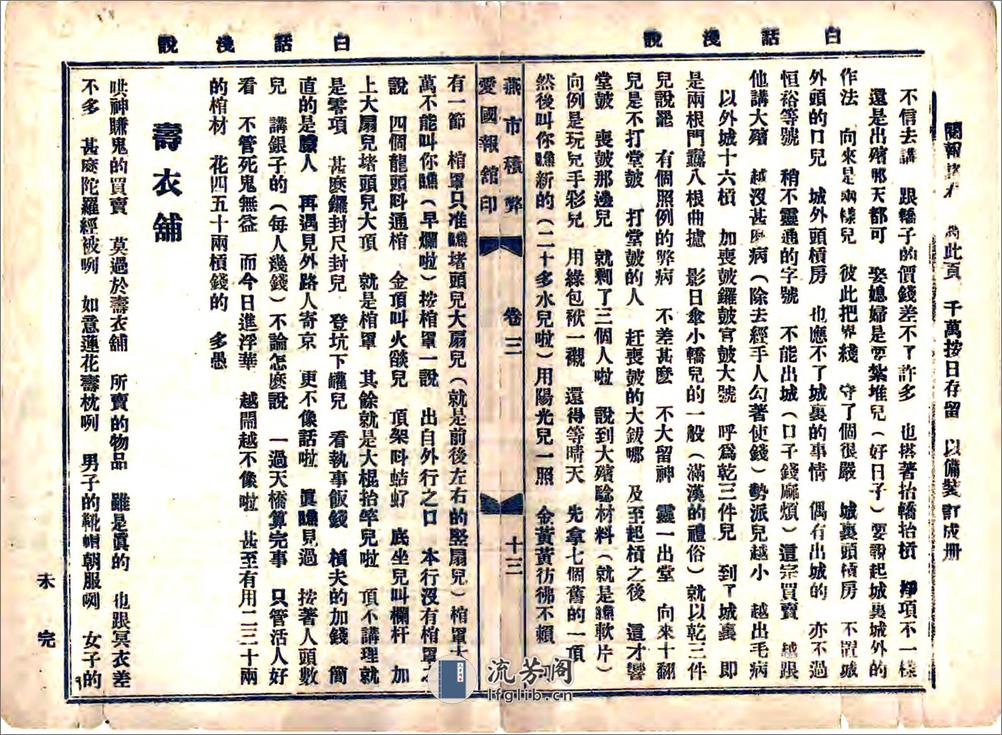 白話淺說
閱報諸君 將此頁 千萬按日存留 以備裝訂成冊
不信去講 跟轎子的價錢差不了許多 也搭著抬轎抬槓 挣項不一樣
還是出殯那天都可 娶媳婦是要紮堆兒(好日子)要報起城裏城外的
作法 向來是兩樣兒 彼此把界綫 守了個很嚴 城裏頭槓房 不置城
外頭的口兒 城外頭槓房 也應不了城裏的事情 偶有出城的 亦不過
恒裕等號 稍不靈通的字號 不能出城(口子錢麻煩)這宗買賣 越跟
他講大殯 越沒甚麽病(除去經手人勾著使錢)勢派兒越小 越出毛病
以外城十六槓 加喪皷鑼皷官皷大號 呼爲乾三件兒 到了城裏 即
是兩根門纛八根曲㨿 影日傘小轎兒的一般(滿漢的禮俗)就以乾三件
兒說罷 有個照例的弊病 不差甚麽 不大留神 靈一出堂 向來十翻
兒是不打堂皷 打堂皷的人 赶喪皷的大鈸哪 及至起槓之後 這才響
堂皷 喪皷那邊兒 就剩了三個人啦 說到大殯騐材料(就是軟片)
向例是玩兒手彩兒 用綠包袱一襯 還得等晴天 先拿七個舊的一頂
然後叫你瞧新的(二十多水兒啦)用陽光兒一照 金黃黃彷彿不賴
燕市積弊 卷三 十三
愛國報館印
白話淺說
有一節 棺罩只准瞧堵頭兒大扇兒(就是前後左右的竪扇兒)棺罩大
萬不能叫你瞧(早爛啦)按棺罩一說 出自外行之口 本行沒有棺罩之
說 四個龍頭呌通棺 金頂叫火燄兒 頂架呌蛣蚵 底坐兒叫欄杆 加
上大扇兒堵頭兒大頂 就是棺罩 其餘就是大棍抬竿兒啦 頂不講理就
是零項 甚麽鑼封尺封兒 登坑下罐兒 看執事飯錢 槓夫的加錢 簡
直的是膩人 再遇見外路人寄京 更不像話啦 眞瞧見過 按著人頭數
兒 講銀子的(每人幾錢)不論怎麽說 一過天橋算完事 只管活人好
看 不管死鬼無益 而今日進浮華 越鬧越不像啦 甚至有用二三十兩
的棺材 花四五十兩槓錢的 多愚
壽衣舖
哄神賺鬼的買賣 莫過於壽衣舖 所賣的物品 雖是眞的 也跟冥衣差
不多 甚麽陀羅經被咧 如意蓮花壽枕咧 男子的靴帽朝服咧 女子的
未完
流芳閣
lfglib.cn